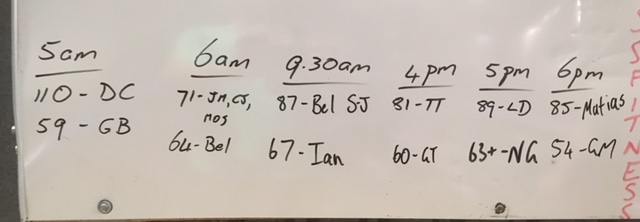 5am
110 - DC
59 - GB
6am
71 - JM, CJ,
MOS
64 - Bel
9.30am
87 - Bel S-J
67 - Ian
4pm
81 - TT
60 - GT
5pm
89 - LD
63+ - NG
6pm
85 - Matias
54 - GM
SSFITNESS